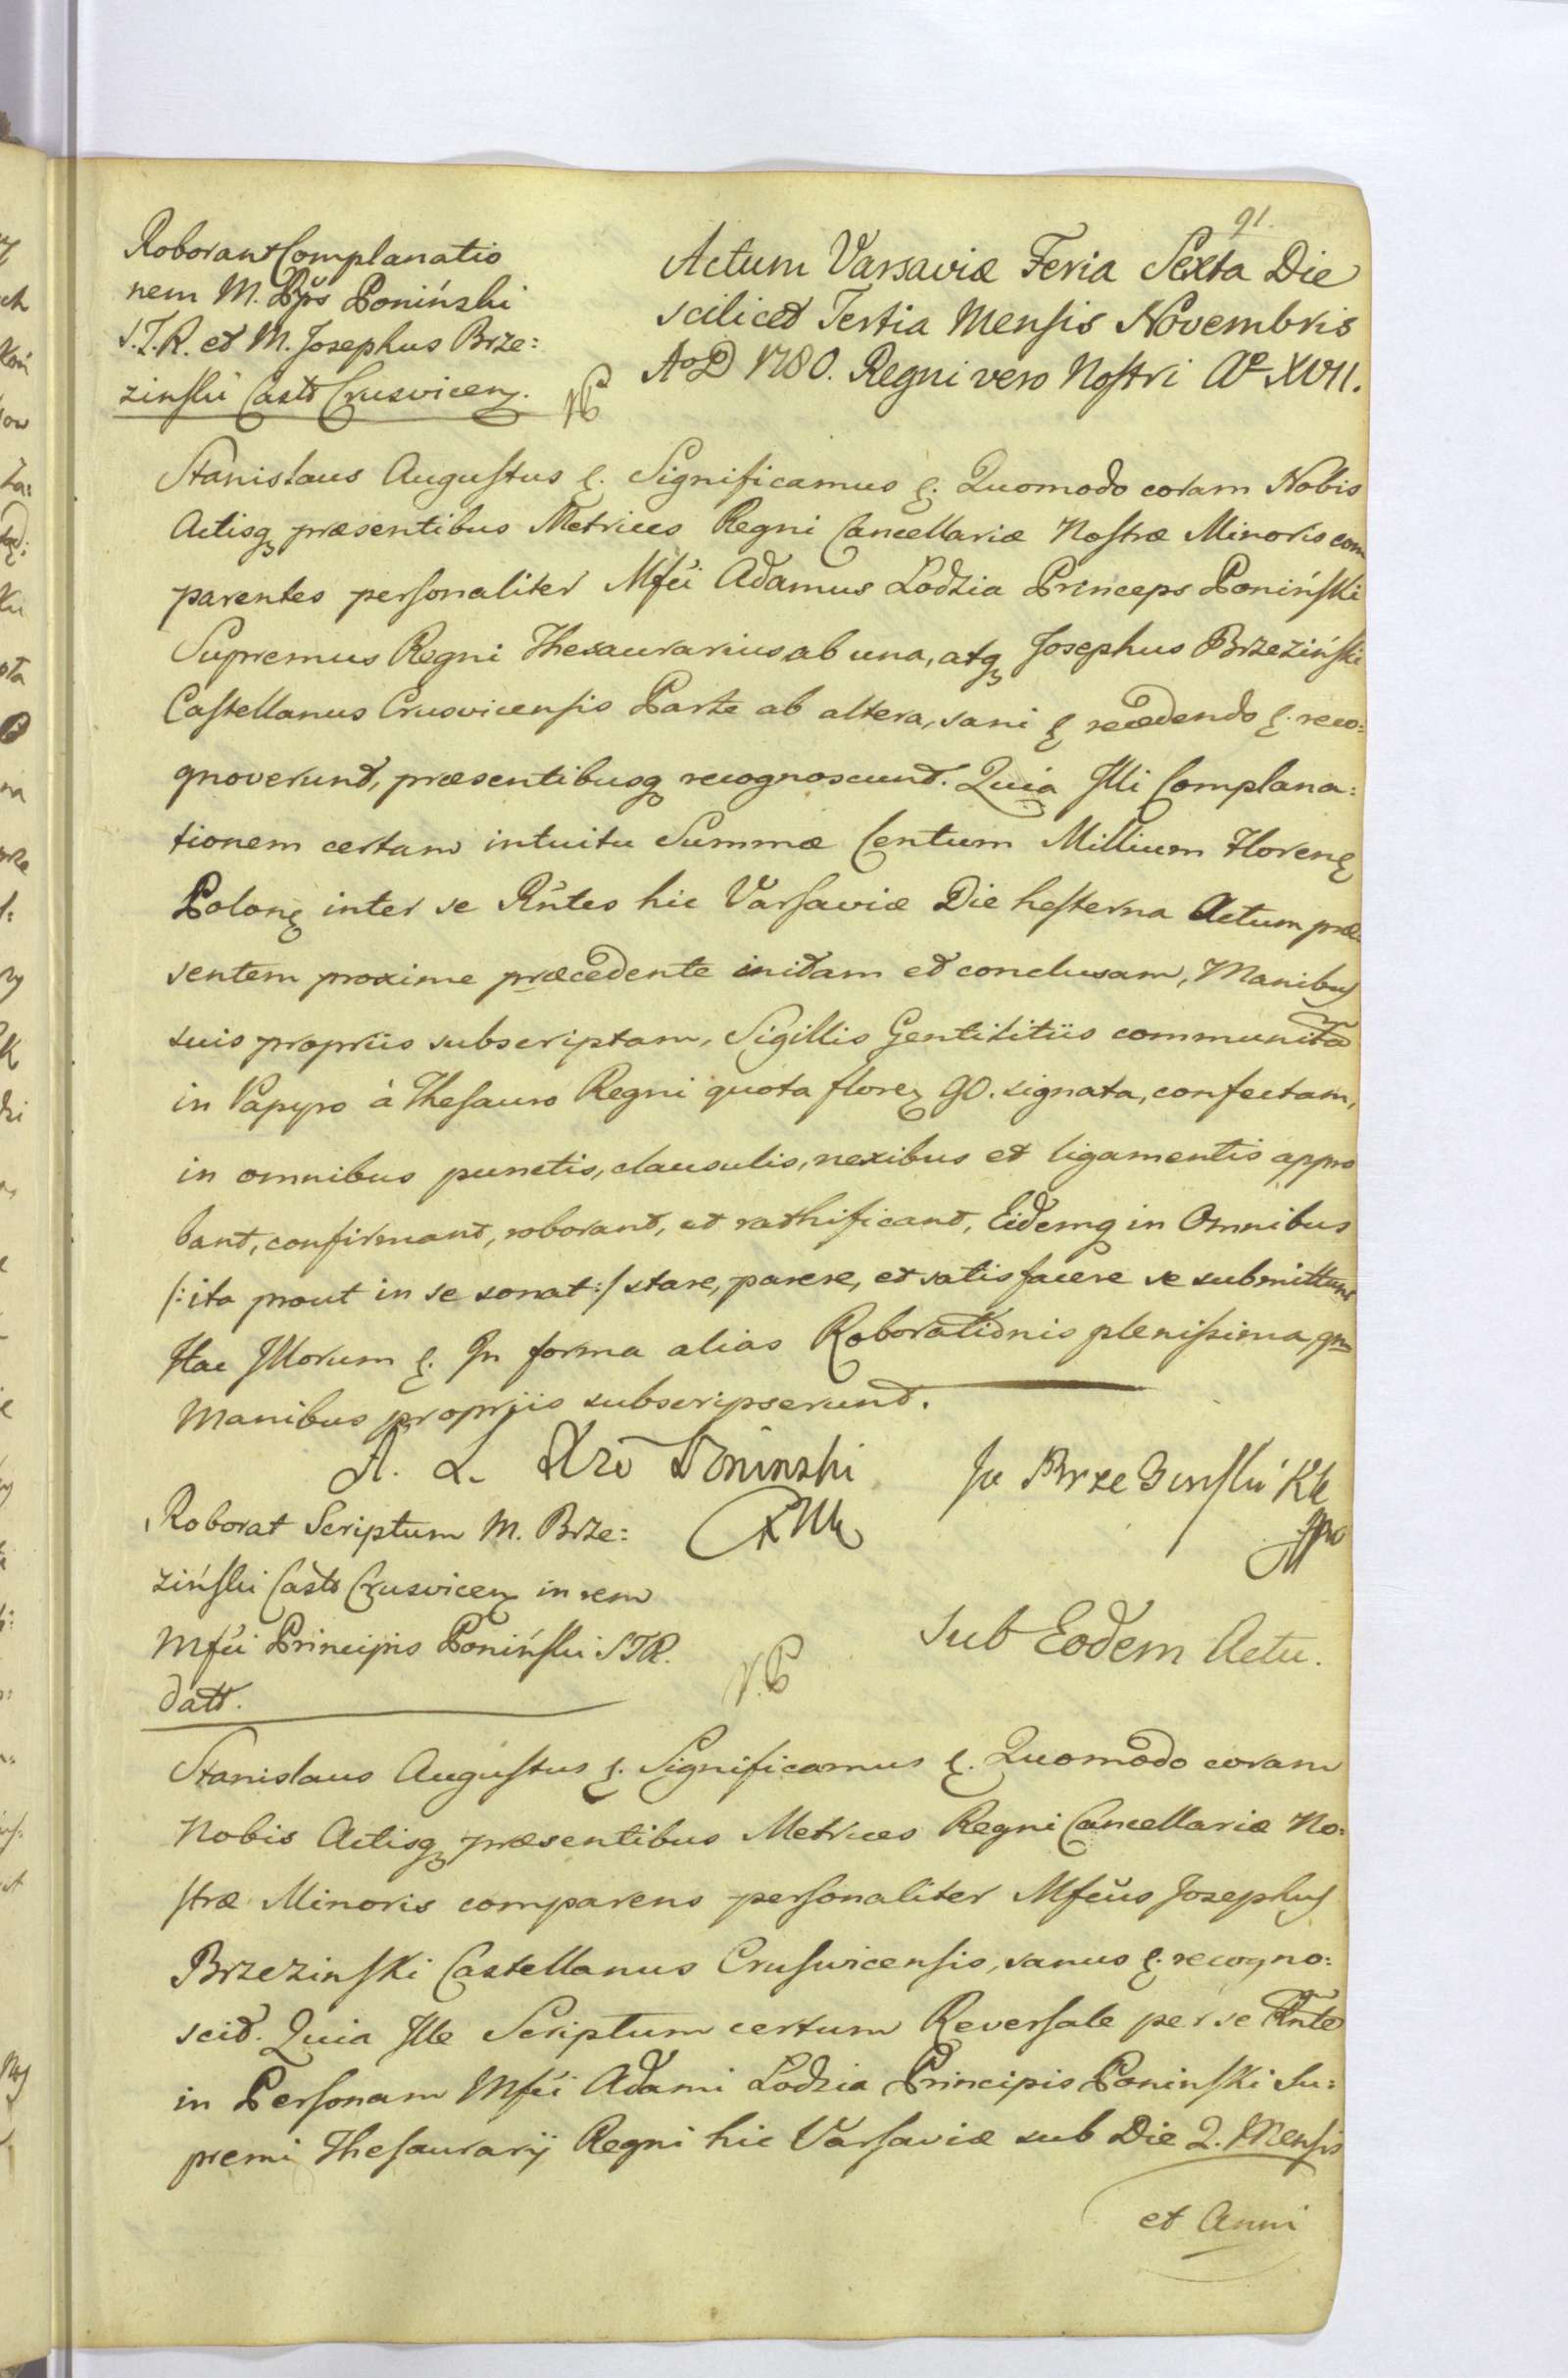 91.
Roborant Complanatio
nem M. Pps Poniński
S.T.R. et M. Josephus Brze:
ziński Castt Crusvicen.
Actum Varsaviæ Feria Sexta Die
scilicet Tertia Mensis Novembris
Ao D 1780. Regni vero Nostri Ao XVII.
Stanislaus Augustus &. Significamus &. Quomodo coram Nobis
Actisq præsentibus Metrices Regni Cancellariæ Nostræ Minoris com
parentes personaliter Mfci Adamus Lodzia Princeps Poniński
Supremus Regni Thesaurarius ab una, atq Josephus Brzeziński
Castellanus Crusvicensis Parte ab altera, sani & recedendo &. reco:
gnoverunt, præsentibusq recognoscunt. Quia Illi Complana:
tionem certam intuitu Summæ Centum Millium Floren
Polon inter se Rntes hic Varsaviæ Die hesterna Actum præ:
sentem proxime præcedente initam et conclusam, Manibus
suis propriis subscriptam, Sigillis Gentilitiis communitā
in Papyro à Thesauro Regni quota floren 90. signata, confectam,
in omnibus punctis, clausulis, nexibus et ligamentis appro
bant, confirmant, roborant, et rathificant, Eidemq in Omnibus
/: ita prout in se sonat :/ stare, parere, et satisfacere se submittunt
Hac Illorum &. In forma alias Roborationis plenissima, qm
Manibus propriis subscripserunt.
A. L. Poninski
Jo Brzezinski KK
mp
Roborat Scriptum M. Brze:
ziński Castt Crusvicen in rem
Mfci Principis Poniński STR.
datt.
Sub Eodem Actu.
Stanislaus Augustus &. Significamus &. Quomodo coram
Nobis Actisq præsentibus Metrices Regni Cancellariæ No:
stræ Minoris comparens personaliter Mfcus Josephus
Brzezinski Castellanus Crusvicensis, sanus &. recogno:
scit. Quia Ille Scriptum certum Reversale per se Rnte
in Personam Mfci Adami Lodzia Principis Poninski Su:
premi Thesaurarij Regni hic Varsaviæ sub Die 2. Mensis
et Anni